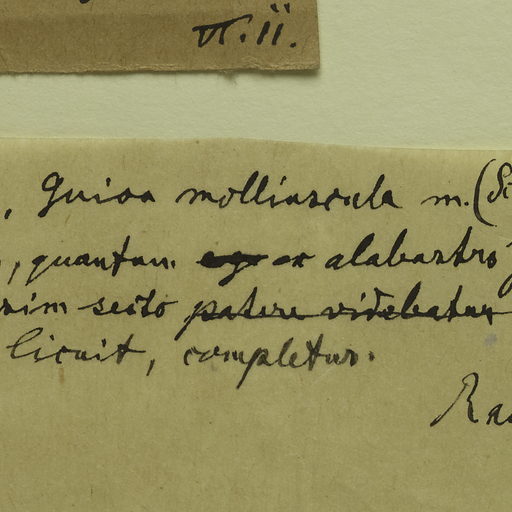 VI.ii.
, Guioa molliuscula m. (Si
, quantum ex alabastro
rim secto patere videbatur
licuit, completur.
Rad